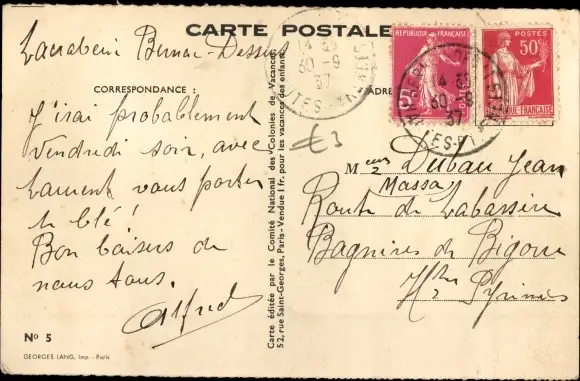 CARTE POSTALE
Lacrabère Bernac-Dessus
CORRESPONDANCE :
ADRE
J'irai probablement
Vendredi soir, avec
Laurent vous porter
le blé !
Bon baisers de
nous tous.
Alfred
N° 5
GEORGES LANG, Imp. - Paris
Carte éditée par le Comité National des Colonies de Vacances,
52, rue Saint-Georges, Paris - Vendue 1 fr. pour les vacances des enfants.
REPUBLIQUE FRANÇAISE
50c
REPUBLIQUE-FRANÇAISE
14 35
30 -9
37
14 35
30 -9
37
€3
M Dubau Jean
Massay
Route de Labassère
Bagnères de Bigorre
Htes Pyrénées